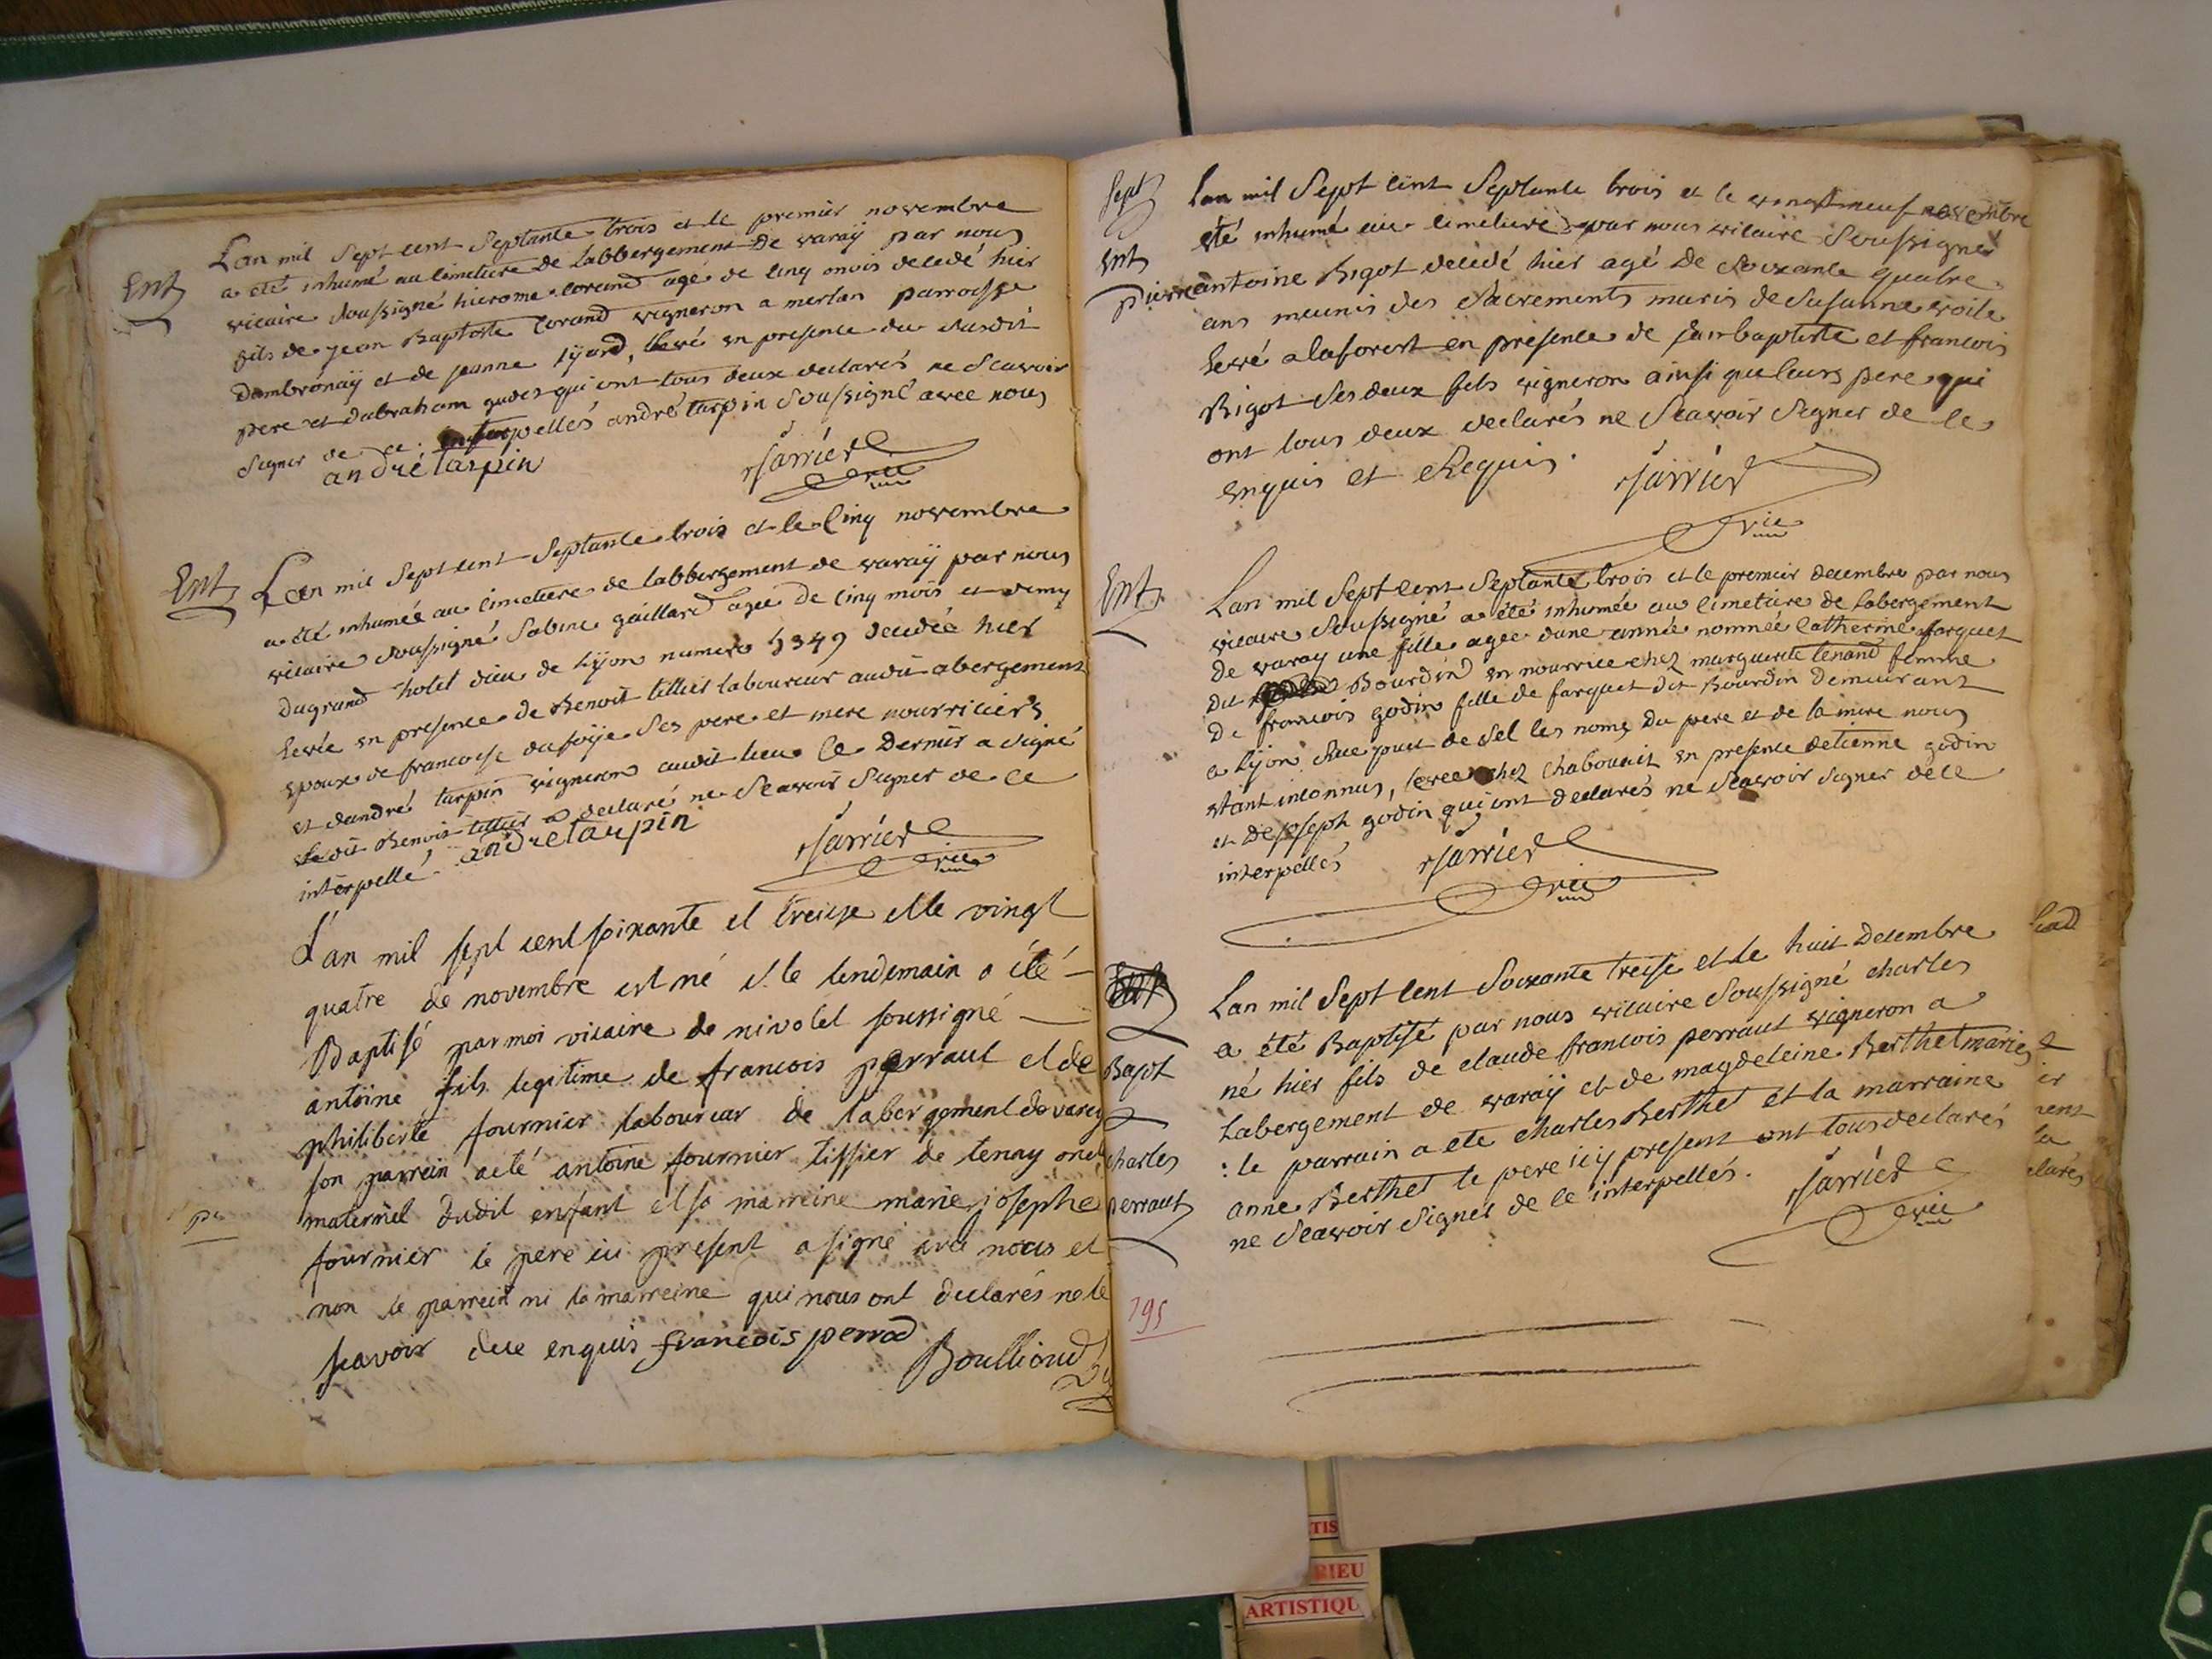 Ent
Lan mil Sept cent Septante trois et le premier novembre
a eté inhumé au cimetiere de labbergement de varaÿ par nous
vicaire soussigné hierome corand agé de cinq mois decedé hier
fils de jean Baptiste Corand vigneron a merlan parroisse
dambronaÿ et de jeanne levé en presence du susdit
pere et dabraham qui ont tous deux declarés ne scavoir
signer de ce interpellés andré tarpin soussigné avec nous
andré tarpin
Sarrier
vic
Ent
Lan mil Sept cent Septante trois et le cinq novembre
a été inhumée au cimetiere de labbergement de varaÿ par nous
vicaire soussigné Sabine gaillard agée de cinq mois et demy
du grand hotel dieu de lÿon numero 5349 decedée hier
levée en presence de Benoit tillier laboureur audit abergement
epoux de francoise dufoÿe ses pere et mere nourriciers
et dandré tarpin vigneron audit lieu ce dernier a signé
ledit Benoit tillier a declaré ne scavoir signer de ce
interpellé
andre tarpin
Sarrier
vic
L'an mil sept cent soixante et treize et le vingt
quatre de novembre est né et le lendemain a été
Baptisé par moi vicaire de nivolet soussigné
antoine fils legitime de francois perraut et de
philiberte fournier laboureur de labergement de varey
son parrein a eté antoine fournier tissier de tenay oncle
maternel dudit enfant et sa marreine marie josephe
fournier le pere ici present a signé avec nous et
non le parrein ni la marreine qui nous ont declarés ne le
scavoir de ce enquis francois perrod
Boullioud
pe
Sept
Ent
Lan mil Sept cent Septante trois et le vingt neuf novembre
été inhumé au cimetiere par nous vicaire Soussigné
pierre antoine Bigot decedé hier agé de soixante quatre
ans munis des sacrements maris de Susanne voile
levé a la forest en presence de jean baptiste et francois
Bigot ses deux fils vigneron ainsi que leurs pere qui
ont tous deux declarés ne scavoir signer de ce
enquis et Requis.
Sarrier
vic
Ent
Lan mil Sept cent Septante trois et le premier decembre par nous
vicaire soussigné a été inhumée au cimetiere de labergement
de varay une fille agée dune année nommée Catherine farquet
dit Bourdin en nourrice chez marguerite tenand femme
de francois godin fille de farquet dit Bourdin demeurant
a lÿon Rue puit de sel les noms du pere et de la mere nous
etant inconnus, levee chez Chabouait en presence detienne godin
et de joseph godin qui ont declarés ne scavoir signer de ce
interpellés
Sarrier
vic
Bapt
charles
perraut
Lan mil Sept cent Soixante treise et le huit decembre
a été Baptisé par nous vicaire soussigné charles
né hier fils de claude francois perraut vigneron a
Labergement de varaÿ et de magdeleine Berthet mariés
: le parrain a ete charles Berthet et la marraine
anne Berthet le pere icÿ present ont tous declarés
ne scavoir signer de ce interpellés.
Sarrier
vic
795
la
clarés
RIEU
ARTISTIQU